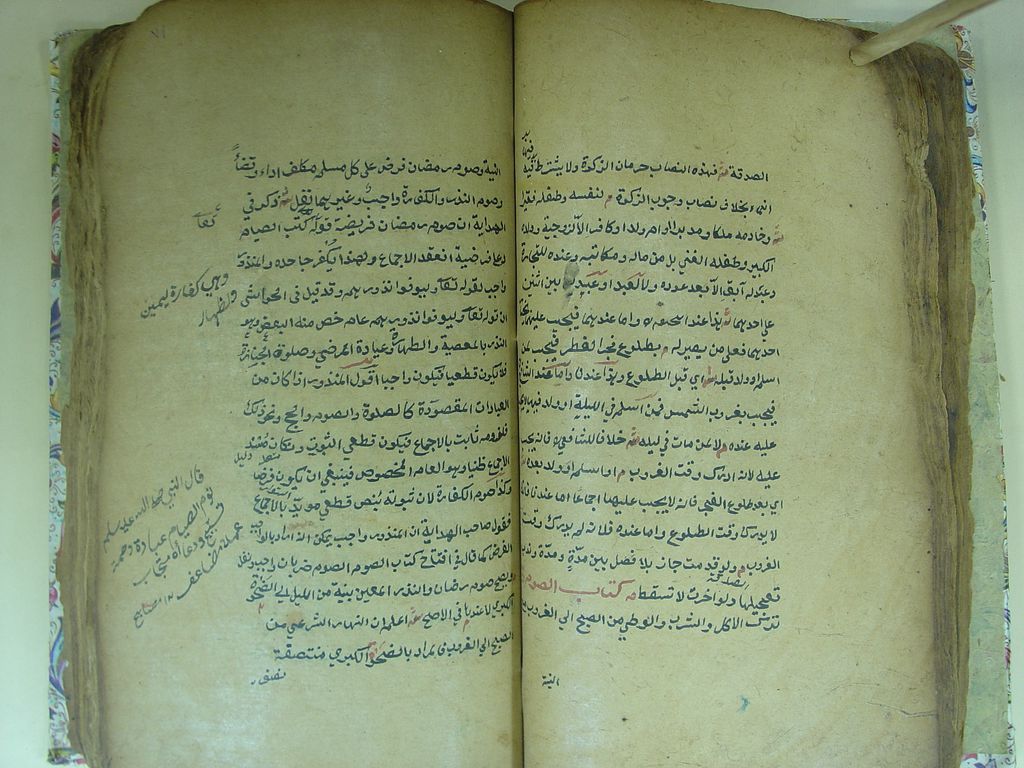 الصدقة فهذه النصاب حرمان الزكوة ولا يشترط فيه
النماء بخلاف نصاب وجوب الزكوة م لنفسه وطفله فقيرا
ش وخادمه ملكا ومدبرا او ام ولد او كافرا لا لزوجته وولده
الكبير وطفله الغني بل من ماله ومكاتبه وعبده للتجارة
وعبد له آبق الا بعد عوده ولا لعبد او عبيد بين اثنين
على احدهما ش هذا عند ابي حنيفة واما عندهما فيجب عليهما
احدهما فعلى من يصير له م بطلوع فجر الفطر فيجب لمن
اسلم او ولد قبله ش اي قبل الطلوع وهذا عندنا واما عند الشافعي
فيجب بغروب الشمس فمن اسلم في الليلة او ولد فيها لا يجب
عليه عنده م لا لمن مات في ليله ش خلافا للشافعي فانه يجب
عليه لانه ادرك وقت الغروب م او اسلم او ولد بعده ش
اي بعد طلوع الفجر فانه لا يجب عليهما اجماعا اما عندنا فلانه
لا يدرك وقت الطلوع واما عنده فلانه لم يدرك وقت
الغروب م ولو قدمت جاز بلا فصل بين مدة ومدة وندب
تعجيلها ولو اخرت لا تسقط م كتاب الصوم
ترك الاكل والشرب والوطي من الصبح الى الغروب مع
النية
النية وصوم رمضان فرض على كل مسلم مكلف اداء وقضاء
وصوم النذر والكفارة واجب وغيرهما نفل ش ذكر في
الهداية ان صوم رمضان فريضة لقوله كتب عليكم الصيام
وعلى فرضيته انعقد الاجماع ولهذا يكفر جاحده والمنذور
واجب لقوله تعالى وليوفوا نذورهم وقد قيل في الحواشي
ان قوله تعالى وليوفوا نذورهم عام خص منه البعض وهو
النذر بالمعصية والطهارة وعيادة المرضى وصلوة الجنازة
فلا يكون قطعيا فيكون واجبا اقول المنذور اذا كان من
العبادات المقصودة كالصلوة والصوم والحج ونحو ذلك
فلزومه ثابت بالاجماع فيكون قطعي الثبوت وان كان سند
الاجماع ظنيا وهو العام المخصوص فينبغي ان يكون فرضا
وكذا صوم الكفارة لان ثبوته بنص قطعي مؤيد بالاجماع
فقول صاحب الهداية ان المنذور واجب يمكن انه اراد بالواجب
الفرض كما قال في افتتاح كتاب الصوم الصوم ضربان واجب ونفل
ويصح صوم رمضان والنذر المعين بنية من الليل الى الضحوة
الكبرى لا عندها في الاصح ش اعلم ان النهار الشرعي من
الصبح الى الغروب فالمراد بالضحوة الكبرى منتصفه
وهي كفارة يمين
والظهار
قال النبي صلى الله عليه وسلم
نوم الصائم عبادة وصمته
تسبيح ودعاؤه مستجاب
وعمله مضاعف